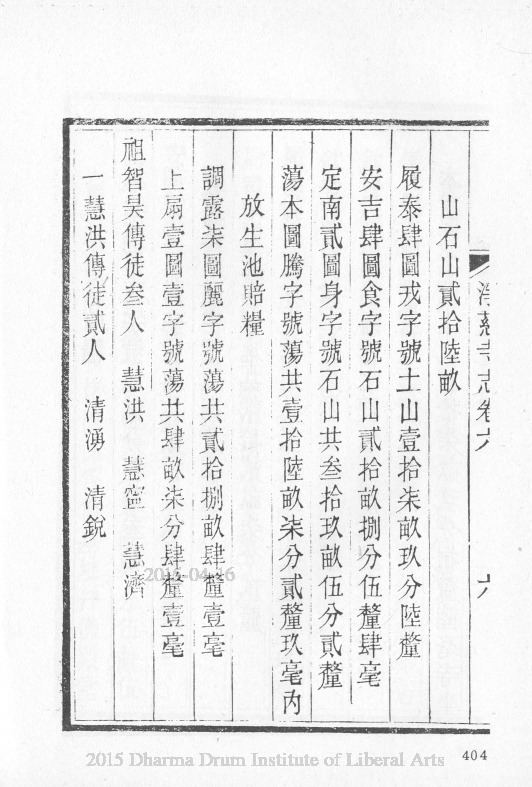 淨慈寺志卷六 六
山石山貳拾陸畝
履泰肆圖戎字號土山壹拾柒畝玖分陸釐
安吉肆圖食字號石山貳拾畝捌分伍釐肆毫
定南貳圖身字號石山共叁拾玖畝伍分貳釐
蕩本圖騰字號蕩共壹拾陸畝柒分貳釐玖毫內
放生池賠糧
調露柒圖麗字號蕩共貳拾捌畝肆釐壹毫
上扇壹圖壹字號蕩共肆畝柒分肆釐壹毫
祖智昊傳徒叁人 慧洪 慧寍 慧濟
一慧洪傳徒貳人 清湧 清銳
2015-04-16
2015 Dharma Drum Institute of Liberal Arts
404